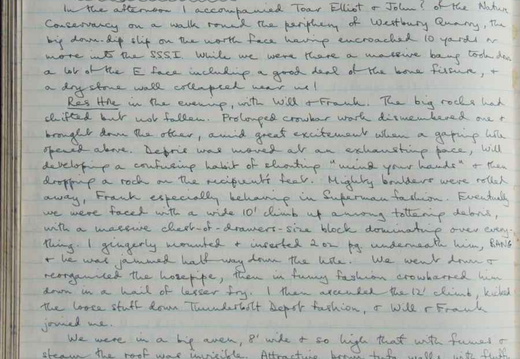 In the afternoon I accompanied Toar Elliot + John? of the Nature
Conservancy on a walk round the periphery of Westbury Quarry, the
big down-dip slip on the north face having encroached 10 yards or
more into the SSSI. While we were there a massive bang took down
a lot of the E face including a good deal of the bone fissure, +
a dry stone wall collapsed near us!
Res Hole in the evening, with Will + Frank. The big rocks had
shifted but not fallen. Prolonged crowbar work dismembered one +
brought down the other, amid great excitement when a gaping hole
opened above. Debris was moved at an exhausting pace, Will
developing a confusing habit of shouting "mind your hands" + then
dropping a rock on the recipient's feet. Mighty boulders were rolled
away, Frank especially behaving in Superman fashion. Eventually
we were faced with a wide 10' climb up among tottering debris,
with a massive chest-of-drawers-size block dominating over every-
thing. I gingerly mounted + inserted 2 oz pg underneath him, BANG
+ he was jammed half way down the hole! We went down +
reorganised the hosepipe, then in funny fashion crowbarred him
down in a hail of lesser fry. I then ascended the 12' climb, kicked
the loose stuff down Thunderbolt Depot fashion, + Will + Frank
joined me.
We were in a big aven, 8' wide + so high that with fumes +
steam the roof was invisible. Attractive brown tufa walls with